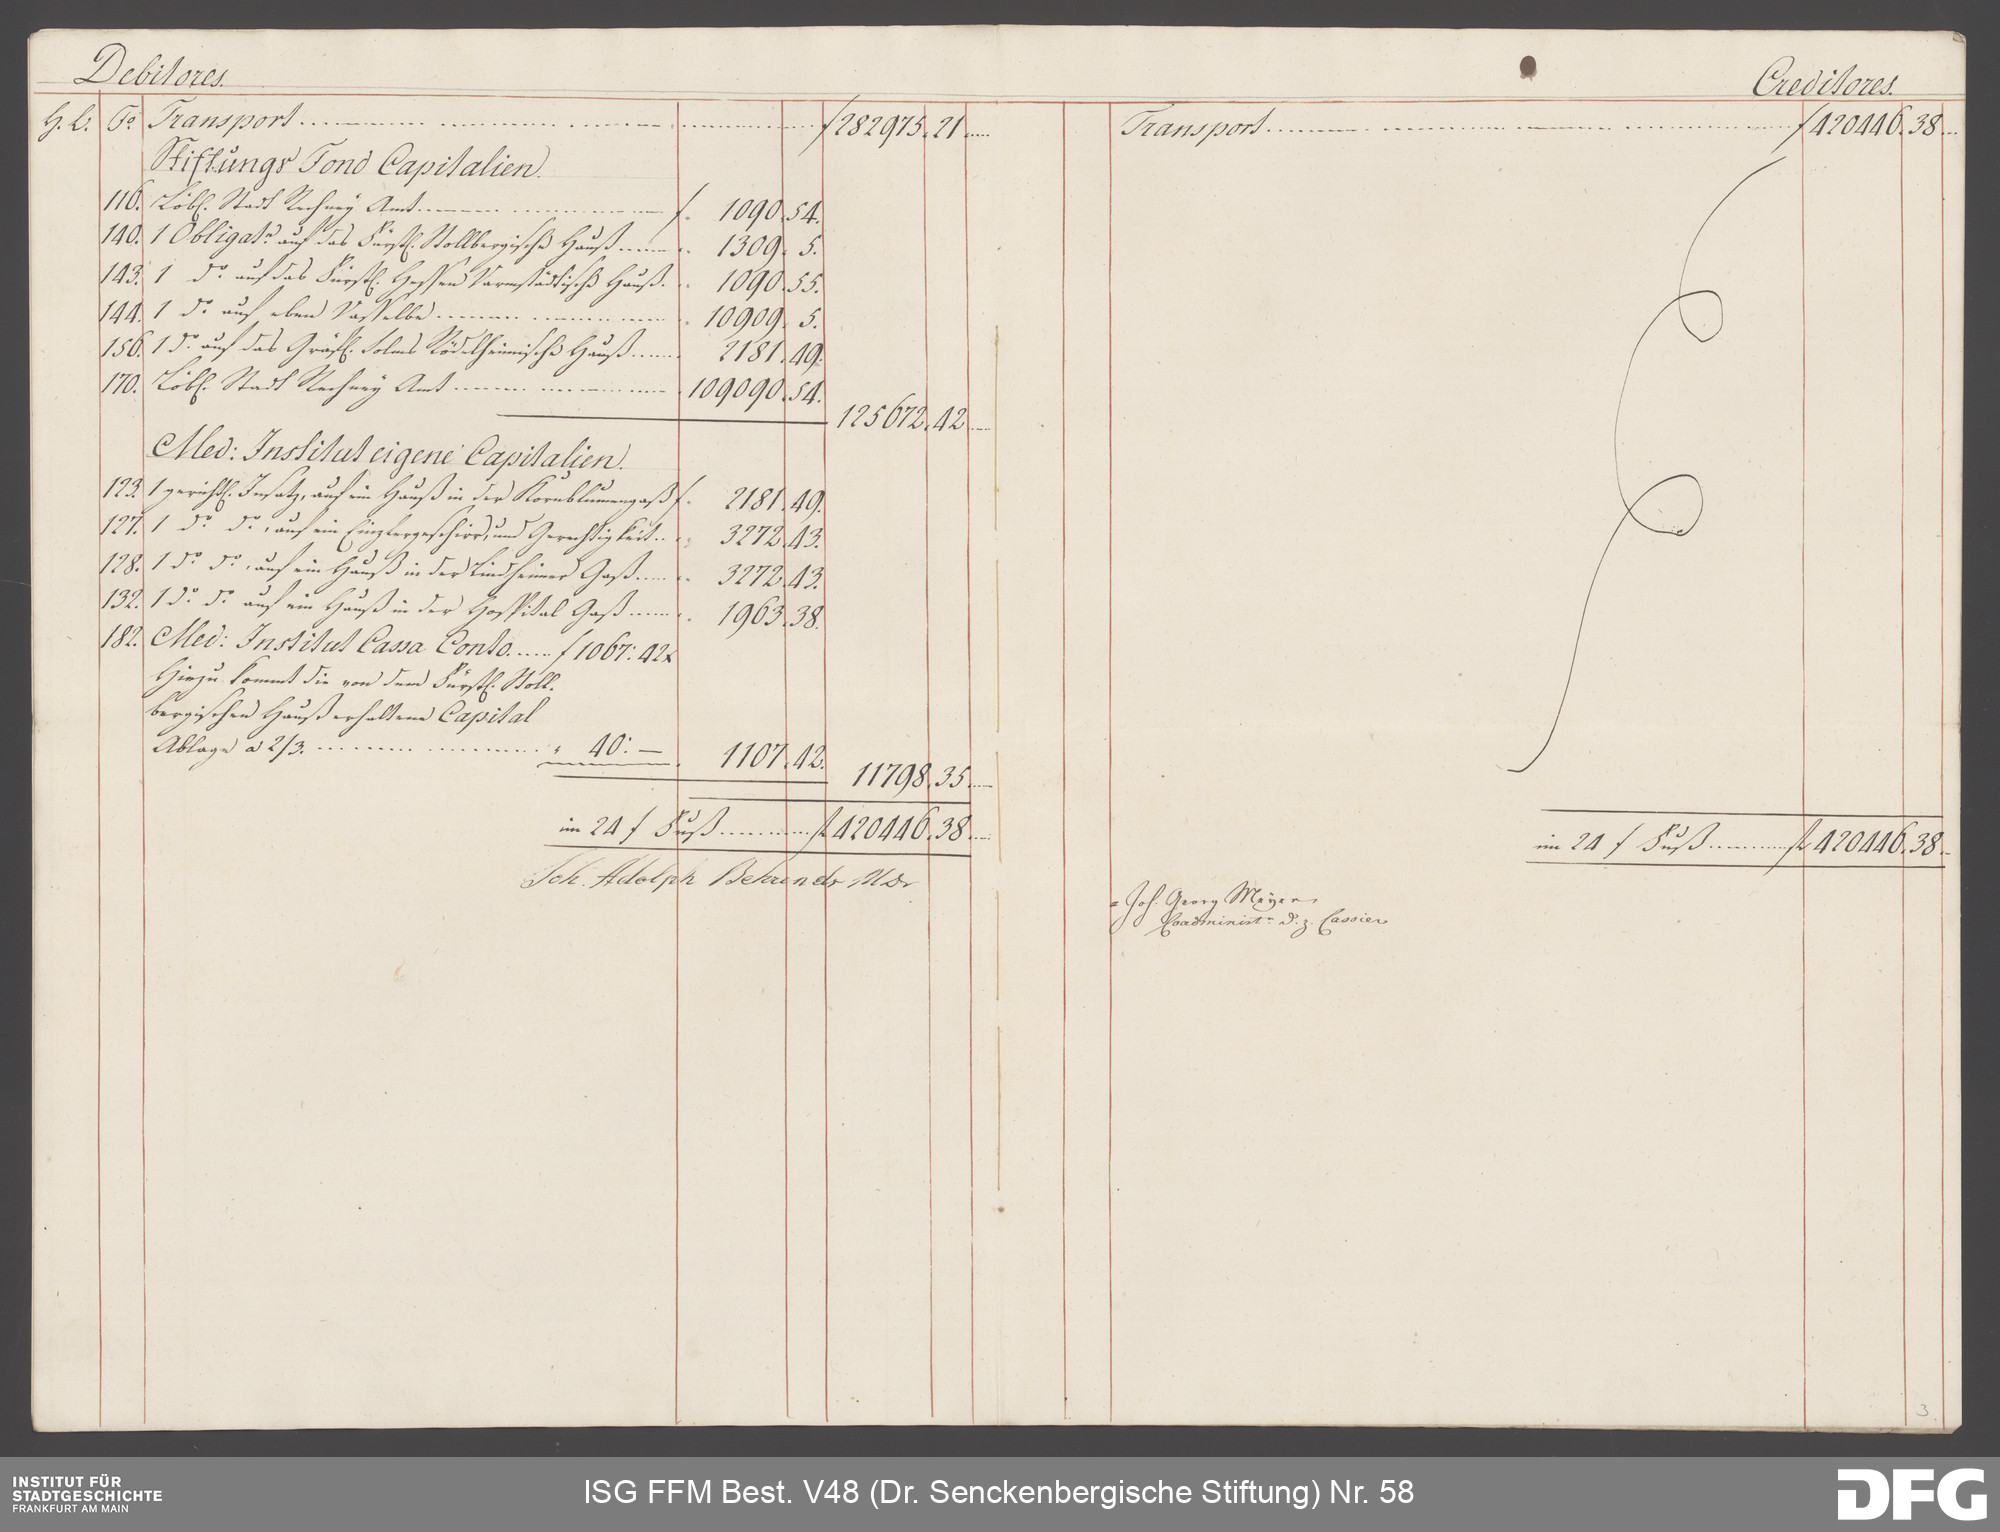 Debitores.
H. L. Fo Transport ........ f 282975. 21 ....
Stiftungs Fond Capitalien.
116. Löbl. Stadt Rechney Amt ........ f. 1090. 54.
140. 1 Obligatn auf das Fürstl. Stollbergische Hauß ...... " 1309. 5.
143. 1 do auf das Fürstl. Hessen Darmstädtische Hauß. " 1090. 55.
144. 1 do auf eben Dasselbe ........ " 10909. 5.
156. 1 do auf das Gräfl. Solms Rödelheimische Hauß ...... 2181. 49.
170. Löbl. Stadt Rechney Amt ........ 109090. 54.
125672. 42 ....
Med: Institut eigene Capitalien.
123. 1 gerichtl. Insatz, auf ein Hauß in der Kornblumengaß f. 2181. 49.
127. 1 do do, auf ein Geschirr, und Gerechtigkeit .. " 3272. 43.
128. 1 do do, auf ein Hauß in der Lindheimer Gaß ...... " 3272. 43.
132. 1 do do auf ein Hauß in der Hospital Gaß ...... " 1963. 38.
182. Med: Institut Cassa Conto ...... f 1067: 42 x
Hiezu kommt die von dem Fürstl. Stoll-
bergischen Hauß erhaltene Capital
Ablage a 2/3. ........ " 40: — 1107. 42.
11798. 35 ....
im 24 f Fuß ........ f 420446. 38 ....
Joh. Adolph Behrends MDr
Creditores.
Transport ........ f 420446. 38 ...
im 24 f Fuß ........ f 420446. 38 ..
Joh. Georg Meyer
Coadminist: d. z. Cassier
3.
INSTITUT FÜR
STADTGESCHICHTE
FRANKFURT AM MAIN
ISG FFM Best. V48 (Dr. Senckenbergische Stiftung) Nr. 58
DFG